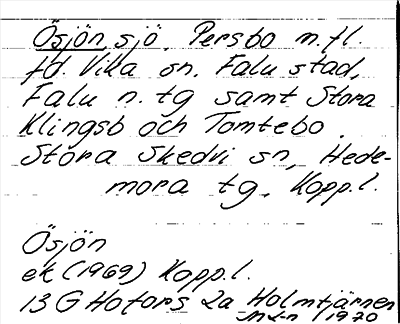 Ösjön, sjö, Persbo m.fl.
fd. Vika sn, Falu stad,
Falu n. tg samt Stora
Klingsb och Tomtebo,
Stora Skedvi sn, Hede-
mora tg, Kopp.l.
Ösjön
ek (1969) Kopp.l.
13 G Hofors 2a Holmtjärnen
1970